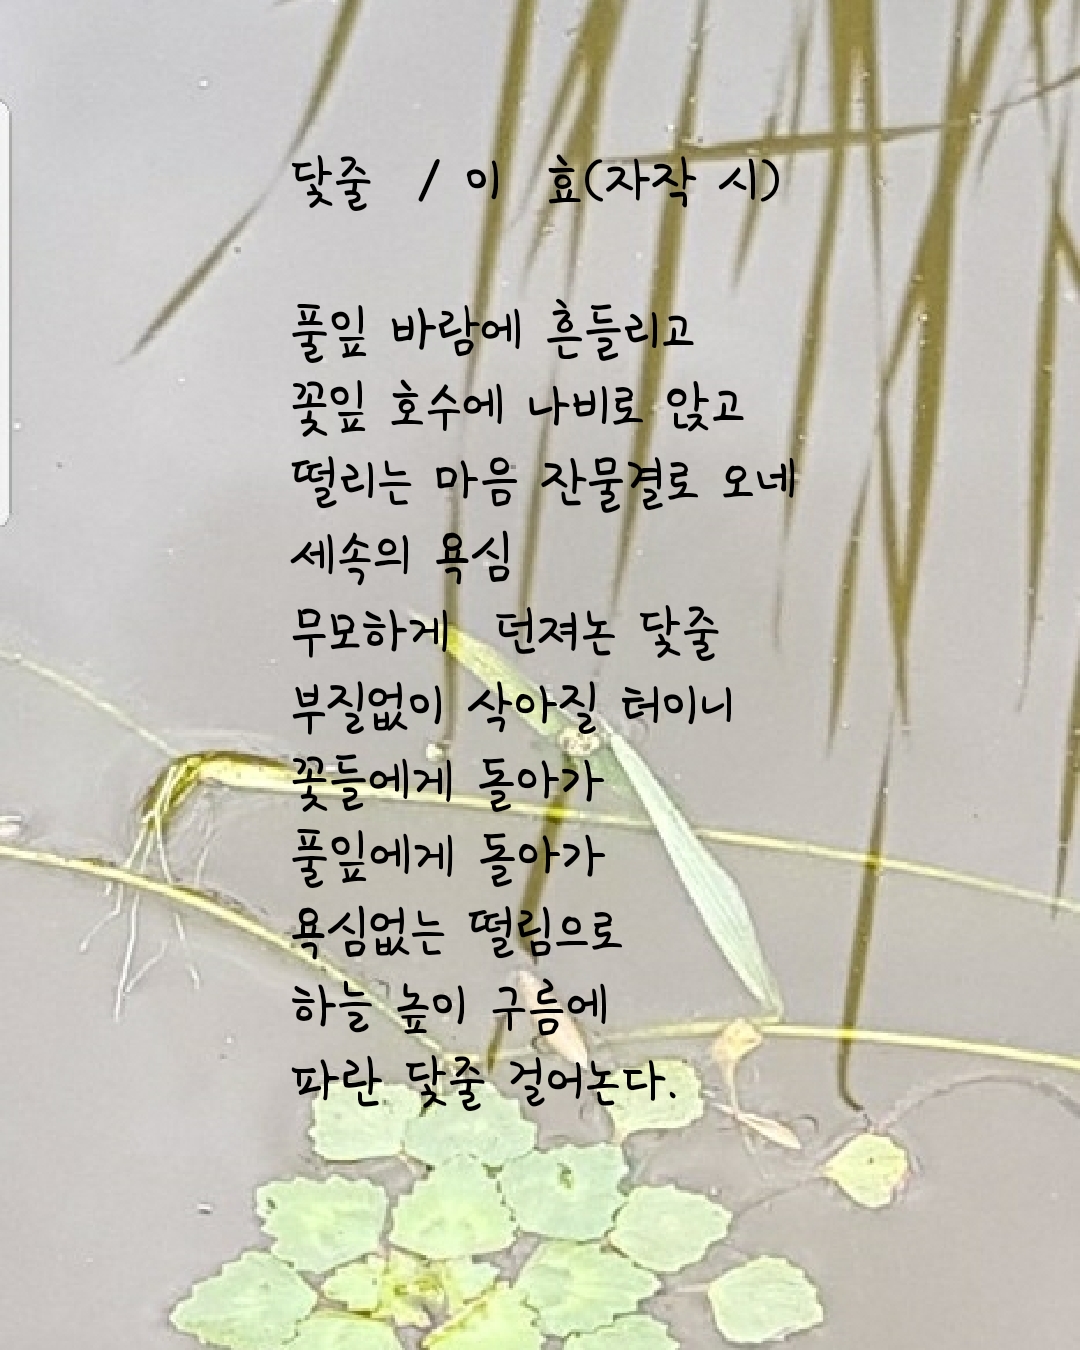 닻줄 / 이 효(자작 시)
풀잎 바람에 흔들리고
꽃잎 호수에 나비로 앉고
떨리는 마음 잔물결로 오네
세속의 욕심
무모하게 던져논 닻줄
부질없이 삭아질 터이니
꽃들에게 돌아가
풀잎에게 돌아가
욕심없는 떨림으로
하늘 높이 구름에
파란 닻줄 걸어논다.